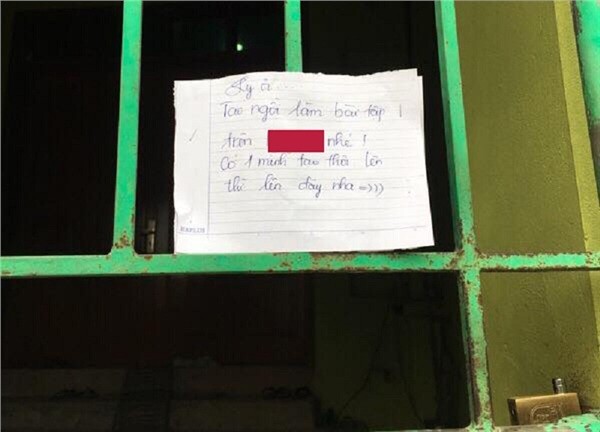 Ly ơi...
Tao ngồi làm bài tập
trên nhé!
Có 1 mình tao thôi lên
thì lên đây nha =)))